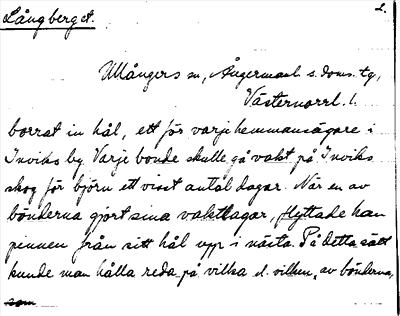 Långberget.
2.
Ullångers sn, Ångermanl. s. doms. tg,
Västernorrl. l.
borrat in hål, ett för varje hemmansägare i
Inviks by. Varje bonde skulle gå vakt på Inviks
skog för björn ett visst antal dagar. När en av
bönderna gjort sina vaktdagar, flyttade han
pinnen från sitt hål upp i nästa. På detta sätt
kunde man hålla reda på vilka el. vilken, av bönderna,
som